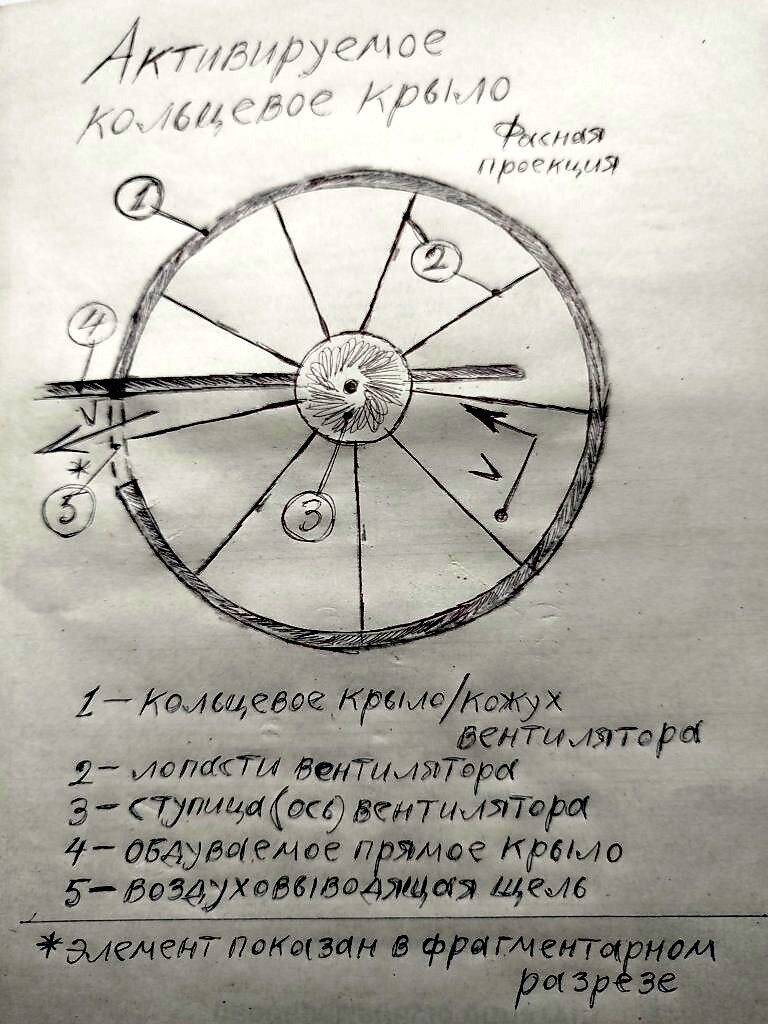 Активируемое
кольцевое крыло
Фасная
проекция
1
2
4
V
*
5
3
V
1 — кольцевое крыло/кожух
вентилятора
2 — лопасти вентилятора
3 — ступица (ось) вентилятора
4 — обдуваемое прямое крыло
5 — воздуховыводящая щель
* элемент показан в фрагментарном
разрезе